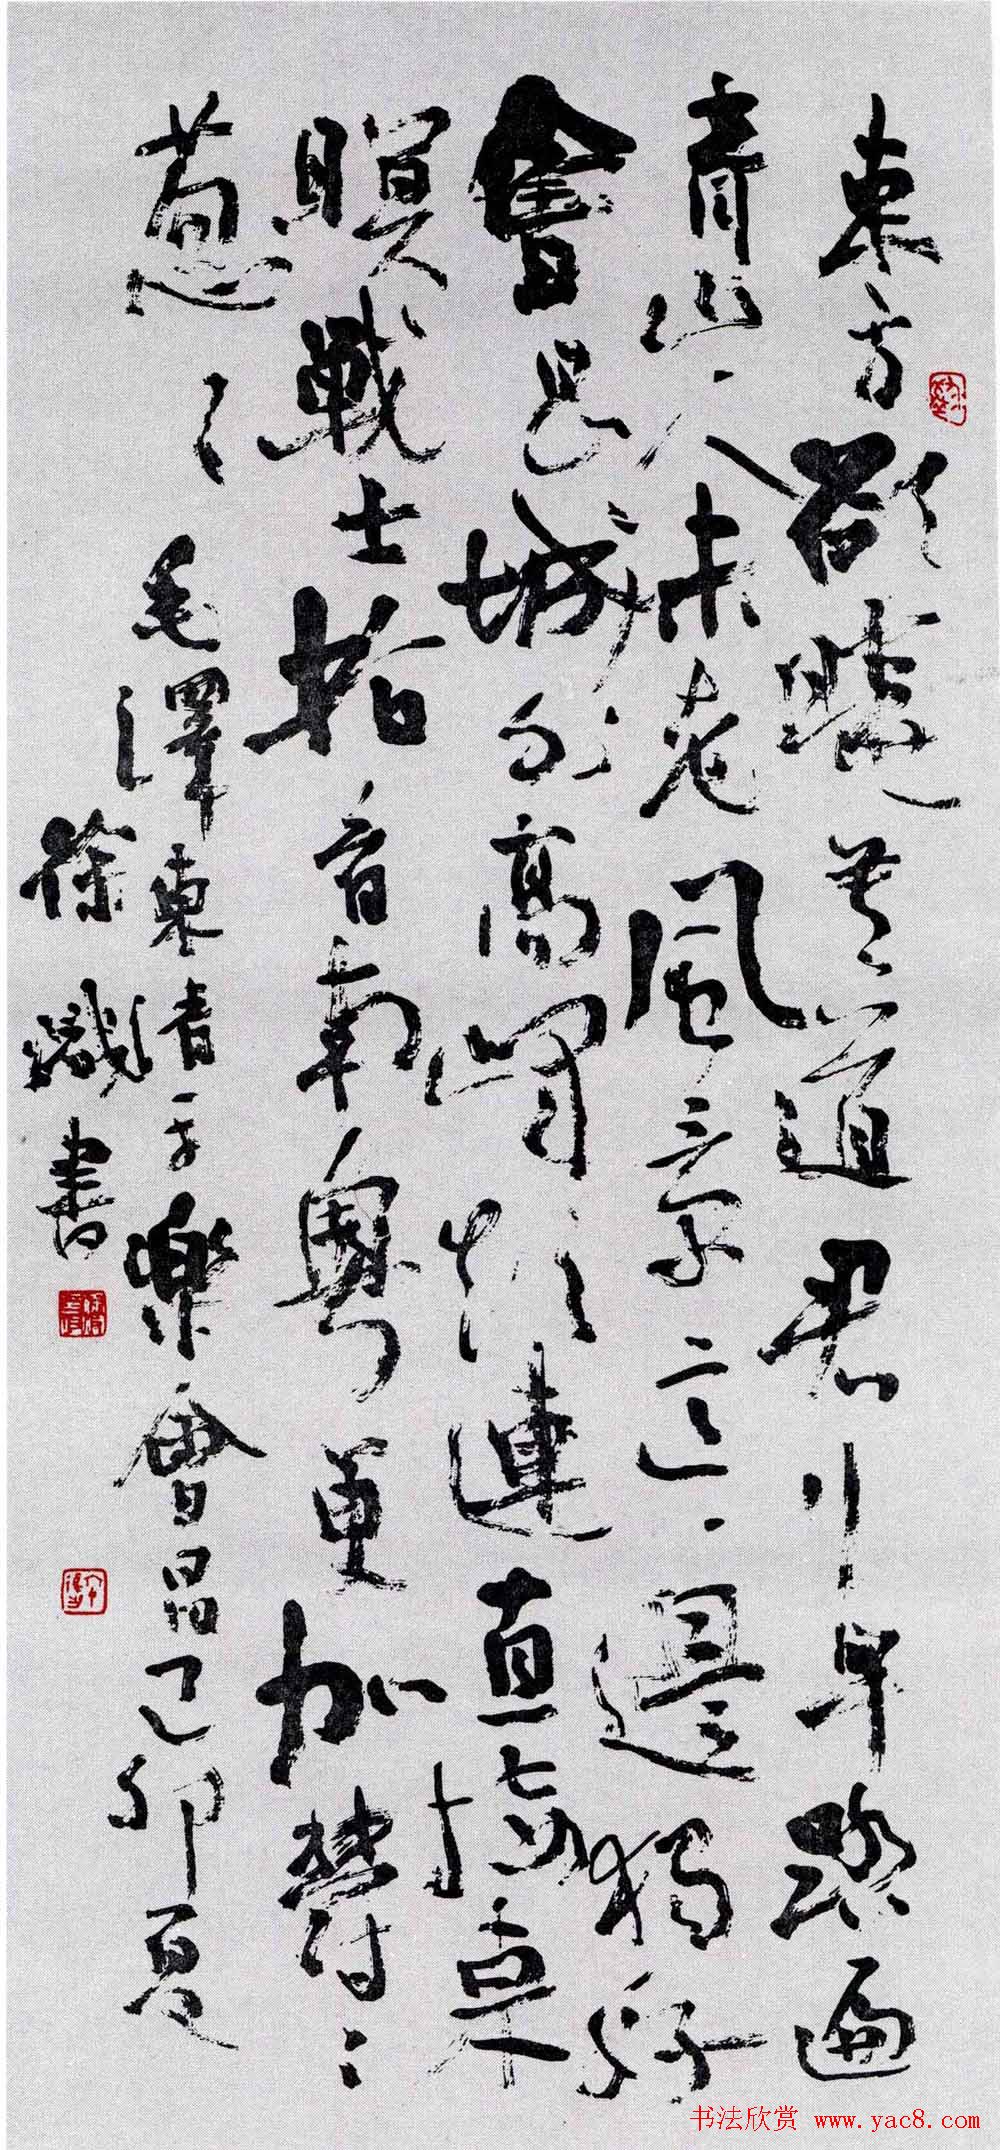 東方欲曉莫道君行早踏遍
青山人未老風景這邊獨好
會昌城外高峰顛連直接東
溟戰士指看南粵更加鬱々
葱々 毛澤東清平樂會昌己卯夏
徐書
书法欣赏 www.yac8.com